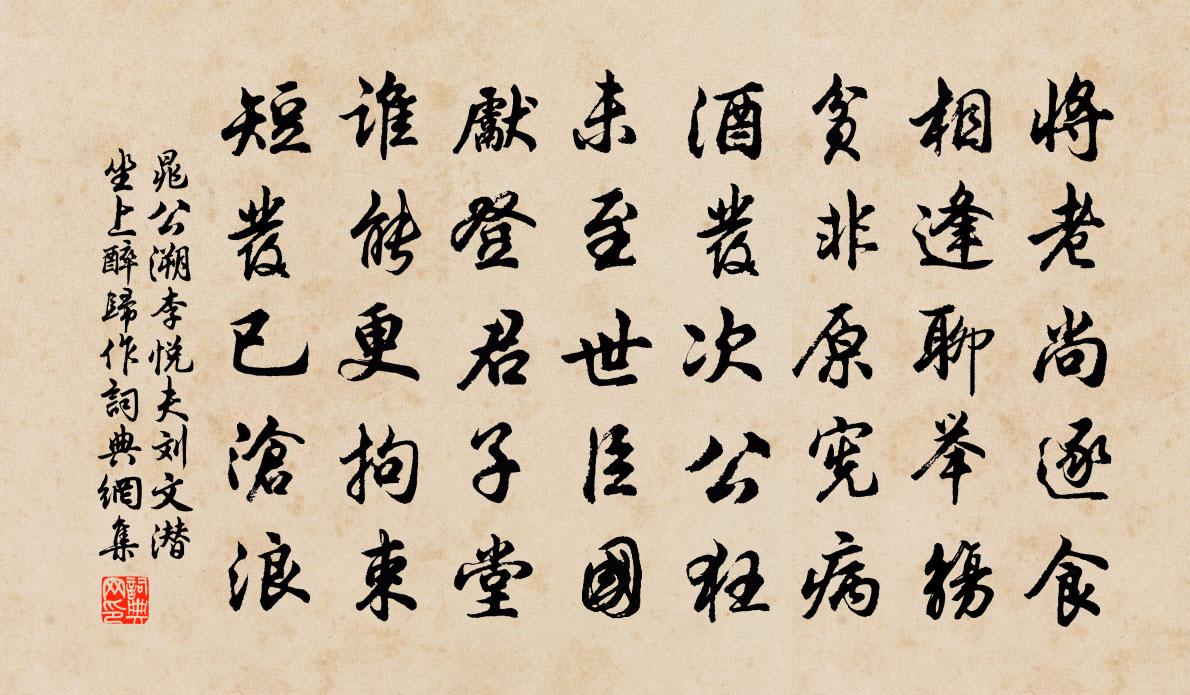 将老尚逐食
相逢聊举觴
贫非原宪病
酒發次公狂
未至世臣國
獻登君子堂
誰能更拘束
短發已滄浪
晁公溯李悦夫刘文潜
坐上醉歸作詞典網集
詞典网印